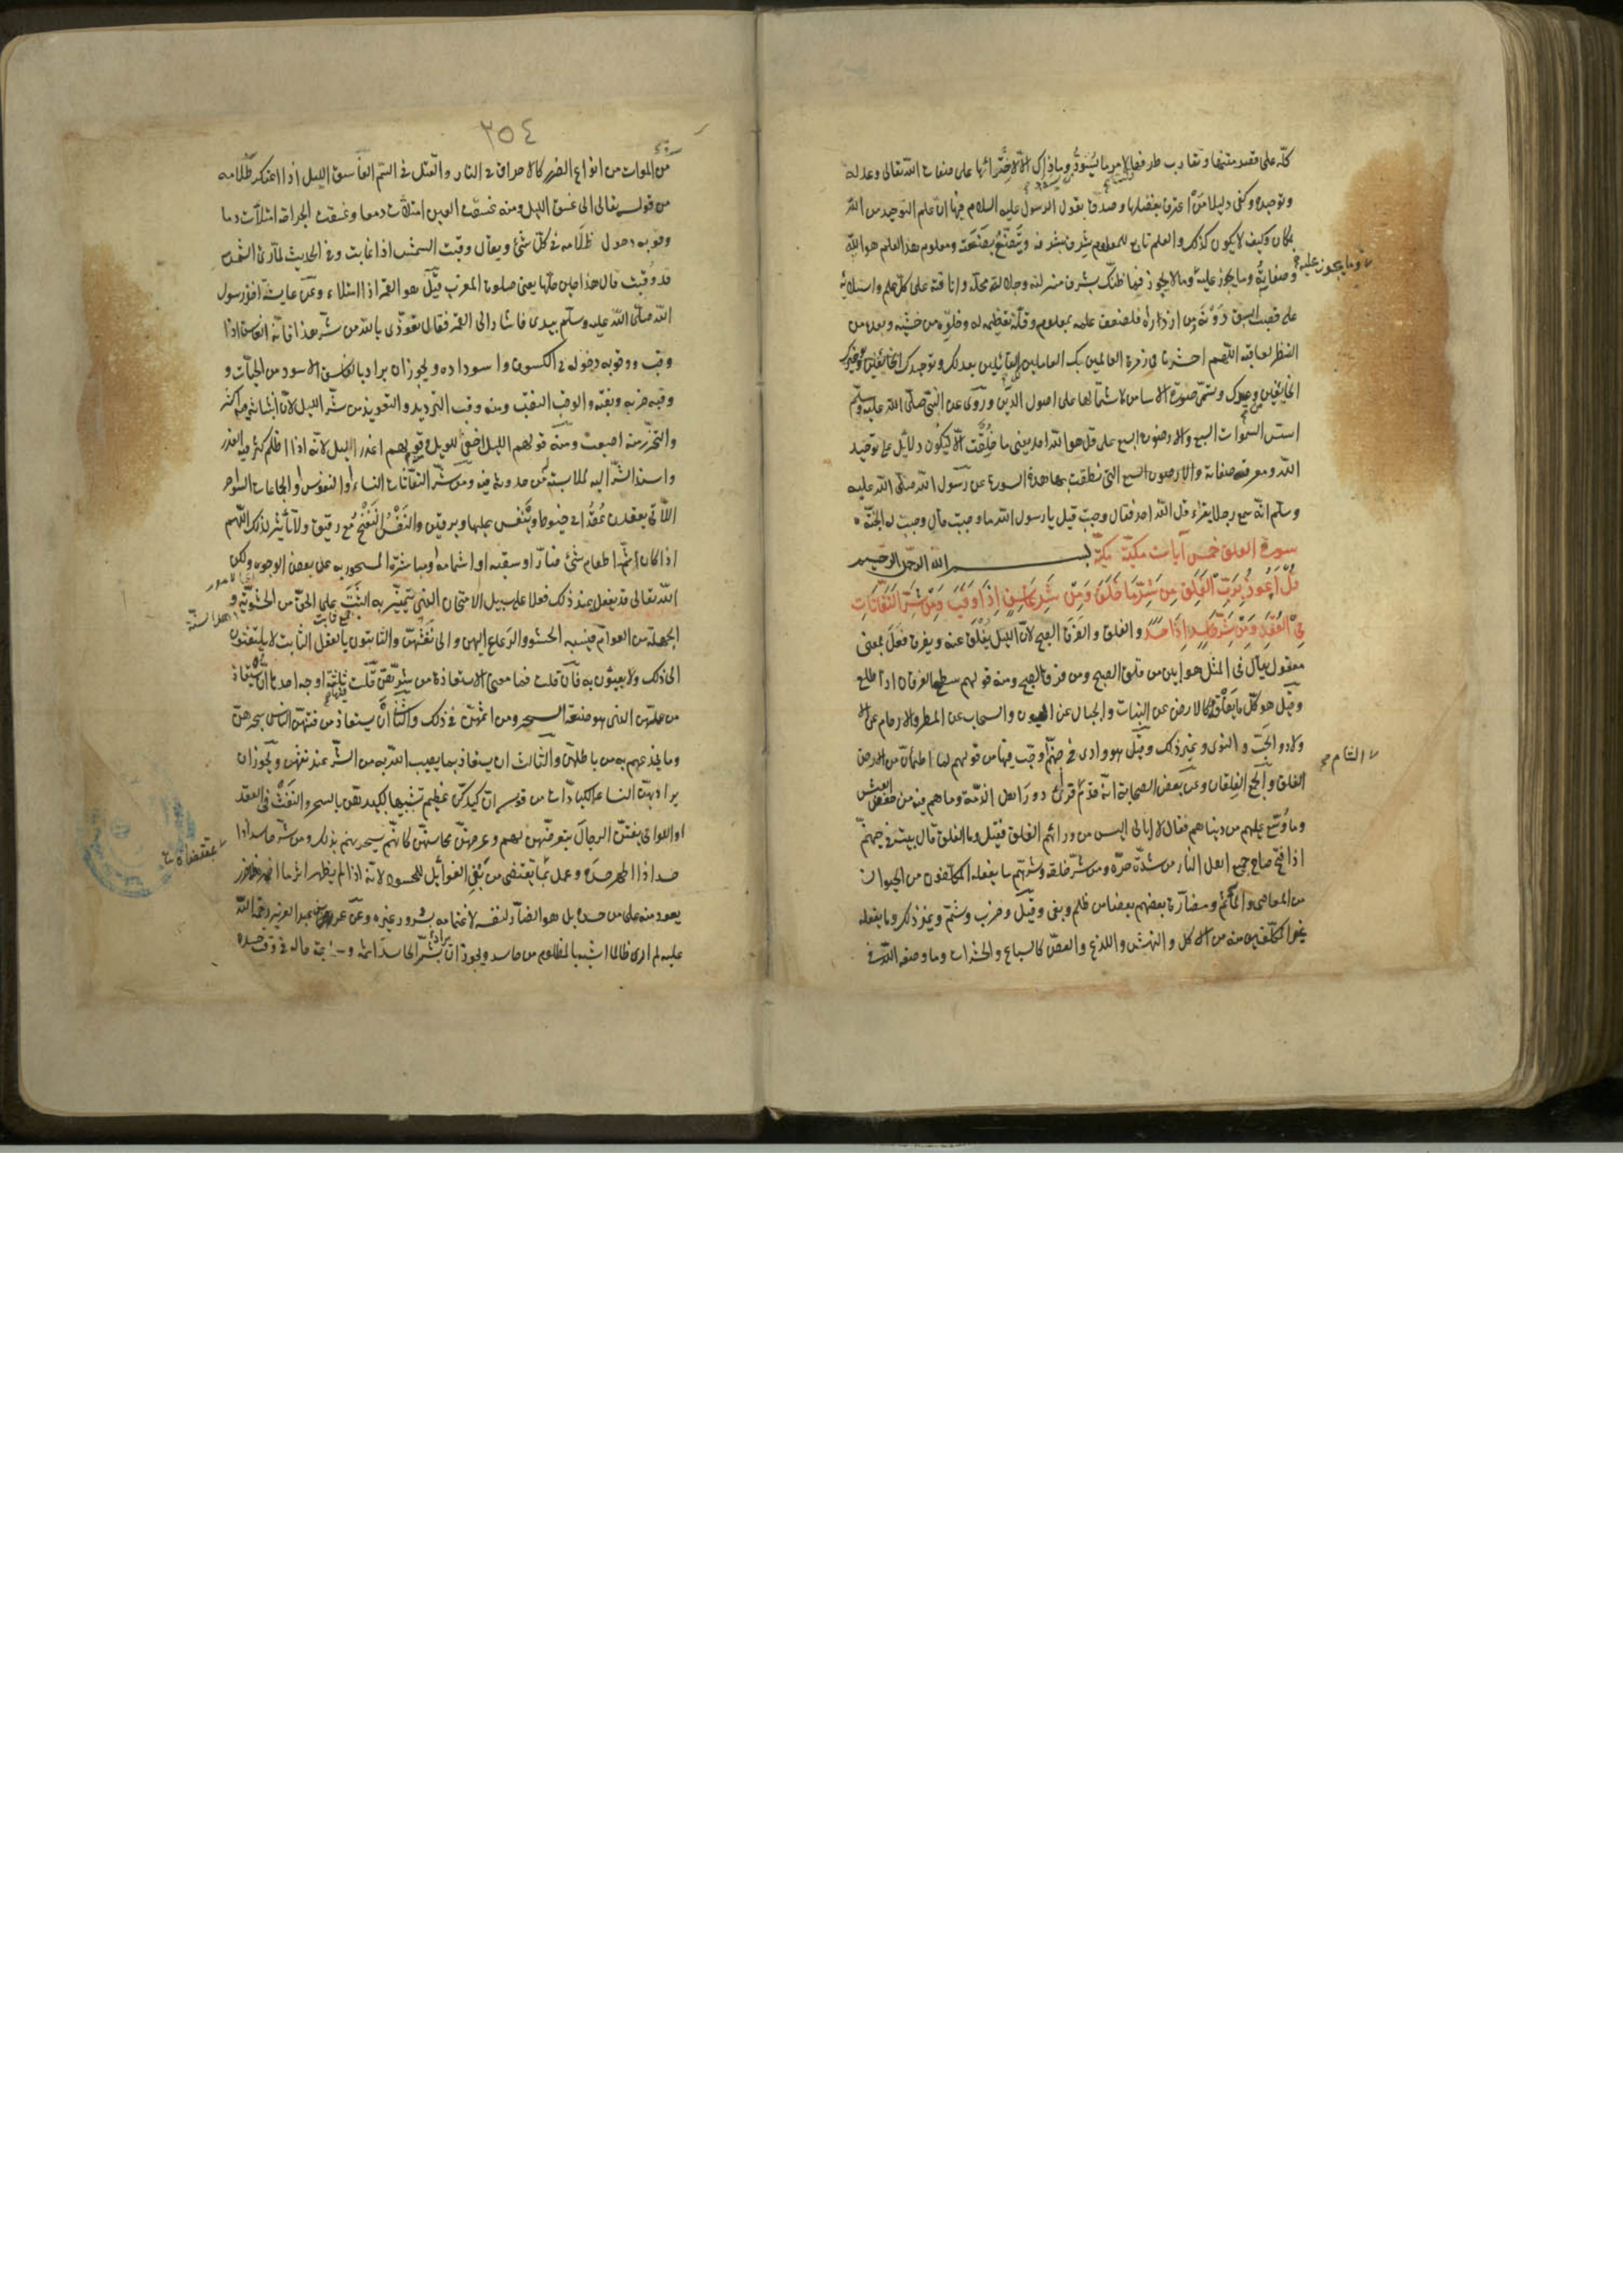 كله على قصر متنها وتقارب طرفيها لامر ما يسود وما ذاك الا لاحتوائها على صفات الله تعالى وعدله
وتوحيده وكفى دليلا من اعترف بفضلها وصدق بقول الرسول عليه السلام فيها ان علم التوحيد من الله
بمكان وكيف لا يكون كذلك والعلم تابع للمعلوم يشرف بشرفه ويتضع بضعته ومعلوم هذا العلم هو الله
وصفاته وما يجوز عليه وما لا يجوز فما ظنك بشرف منزلته وجلالة محله وانافته على كل علم واستيلائه
على قصب السبق دونه ومن ازدراه فلضعف علمه بمعلومه وقلة تعظيمه له وخلوه من خشيته وبعده من
النظر لعاقبته اللهم احشرنا في زمرة العالمين بك العاملين لك القائلين بعدلك وتوحيدك الخائفين من
وعيدك وتسمى سورة الاساس لاشتمالها على اصول الدين وروى عن النبي صلى الله عليه وسلم
اسست السموات السبع والارضون السبع على قل هو الله احد يعنى ما خلقت الا لتكون دلائل على توحيد
الله ومعرفة صفاته التى نطقت بها هذه السورة عن رسول الله صلى الله عليه
وسلم انه سمع رجلا يقراء قل الله احد فقال وجبت قيل يا رسول الله ما وجبت قال وجبت له الجنة
سورة الفلق خمس آيات مكية بسم الله الرحمن الرحيم
قل اعوذ برب الفلق من شر ما خلق ومن شر غاسق اذا وقب ومن شر النفاثات
في العقد ومن شر حاسد اذا حسد والفلق والفرق الصبح لان الليل يفلق عنه ويفرق فعل بمعنى
مفعول يقال في المثل هو ابين من فلق الصبح ومن فرق الصبح ومنه قولهم سطع الفرقان اذا طلع
وقيل هو كل ما يفلقه كالارض عن النبات والجبال عن العيون والسحاب عن المطر والارحام عن الا
ولاد والحب والنوى وغير ذلك وقيل هو وادى في جهنم اوجب فيها من قولهم لما اطمأن من الارض
الفلق والجمع الفلقان وعن بعض الصحابة انه قدم فرأى دور اهل الذمة وما هم فيه من خفض العيش
وما وسع عليهم من دنياهم فقال لا ابالى اليس من ورائهم الفلق فقيل وما الفلق قال بيت في جهنم
اذا فتح صاح جميع اهل النار من شدة حره ومن شر خلقه وشرهم ما يفعله المكلفون من الحيوان
من المعاصى والمآثم ومضارة بعضهم بعضا من ظلم وبغى وقتل وضرب وشتم وغير ذلك وما يفعله
غير المكلفين منه من الاكل والنهش واللدغ والعض كالسباع والحشرات وما وضعه الله في
وما يجوز عليه
الشام
٢٥٤
من الموات من انواع الضرر كالاحراق في النار والقتل في السم الغاسق الليل اذا اعتكر ظلامه
من قوله تعالى الى غسق الليل ومنه غسقت العين امتلأت دمعا وغسقت الجراحة امتلأت دما
وقوبه دخول ظلامه في كل شئ ويقال وقبت الشمس اذا غابت وفي الحديث لما رأى الشمس
قد وقبت قال هذا حين حلها يعنى صلوة المغرب وقيل هو القمر اذا امتلاء وعن عايشة اخذ رسول
الله صلى الله عليه وسلم بيدى فاشار الى القمر فقال تعوذى بالله من شر هذا فانه الغاسق اذا
وقب ووقوبه دخوله في الكسوف واسوداده ويجوز ان يراد بالغاسق الاسود من الحيات و
وقبه ضربه ونقبه والوقب النقب ومنه وقب الثريد والتعويذ من شر الليل لان انبثاثه فيه اكثر
والتحرز منه اصعب ومنه قولهم الليل اخفى للويل وقولهم اغدر الليل لانه اذا اظلم كثر فيه الغدر
واسند الشر اليه لملابسته له من حدوثه فيه ومن شر النفاثات النساء او النفوس او الجماعات السواحر
اللاتى يعقدن عقدا في خيوط وينفثن عليها ويرقين والنفث النفخ مع ريق ولا تأثير لذلك اللهم
الا اذا كان ثم اطعام شئ ضار او سقيه او اشمامه او مباشرة المسحور به على بعض الوجوه ولكن
الله تعالى قد يفعل عند ذلك فعلا على سبيل الامتحان الذى يتميز به الثبت على الحق من الحشوية و
الجهلة من العوام فينسبه الحشو والرعاع اليهن والى نفثهن والثابتون بالقول الثابت لا يلتفتون
الى ذلك ولا يعبئون به فان قلت فما معنى الاستعاذة من شرهن قلت فيها ثلثة اوجه احدها ان يستعاذ
من عملهن الذى هو صنعة السحر ومن اثمهن في ذلك والثانى ان يستعاذ من فتنتهن الناس بسحرهن
وما يخدعنهم به من باطلهن والثالث ان يستعاذ مما يصيب الله به من الشر عند نفثهن ويجوز ان
يراد بهن النساء الكيادات من قوله ان كيدكن عظيم تشبيها لكيدهن بالسحر والنفث في العقد
او اللواتى يفتن الرجال بتعرضهن لهم وعرضهن محاسنهن كانهن يسحرنهم بذلك ومن شر حاسد اذا
حسد اذا اظهر حسده وعمل بما يقتضى من بغى الغوائل للمحسود لانه اذا لم يظهر اثر ما اضمر فلا ضرر
يعود منه على من حسده بل هو الضار لنفسه لاغتمامه بسرور غيره وعن عمر بن عبد العزيز رحمة الله
عليه لم ار ظالما اشبه بالمظلوم من حاسد ويجوز ان يراد بشر الحاسد اثمه وسماجة حاله في وقت حسده
بمقتضاه